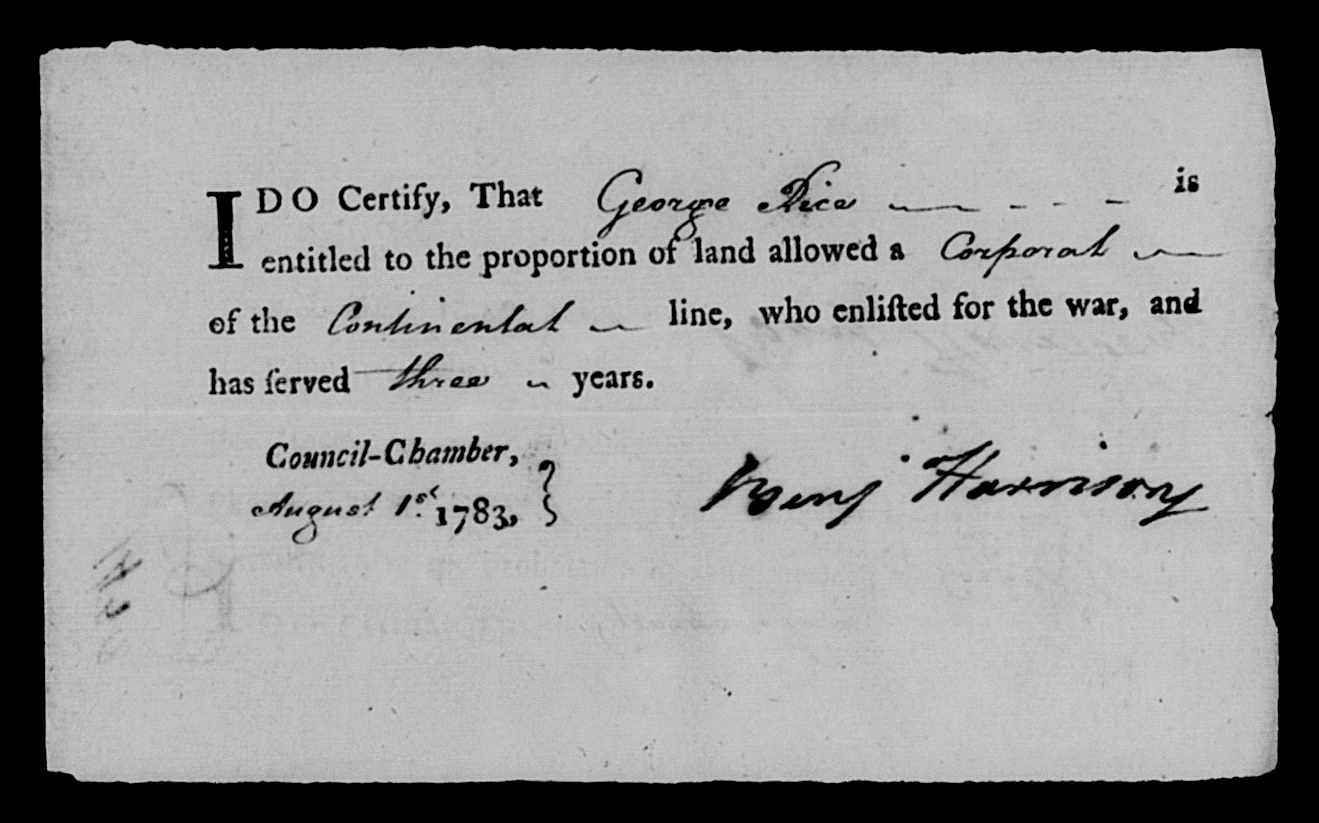 I DO Certify, That George Rice is
entitled to the proportion of land allowed a Corporal
of the Continental line, who enliſted for the war, and
has ſerved three years.
Council-Chamber,
August 1st. 1783, }
Benj Harrison